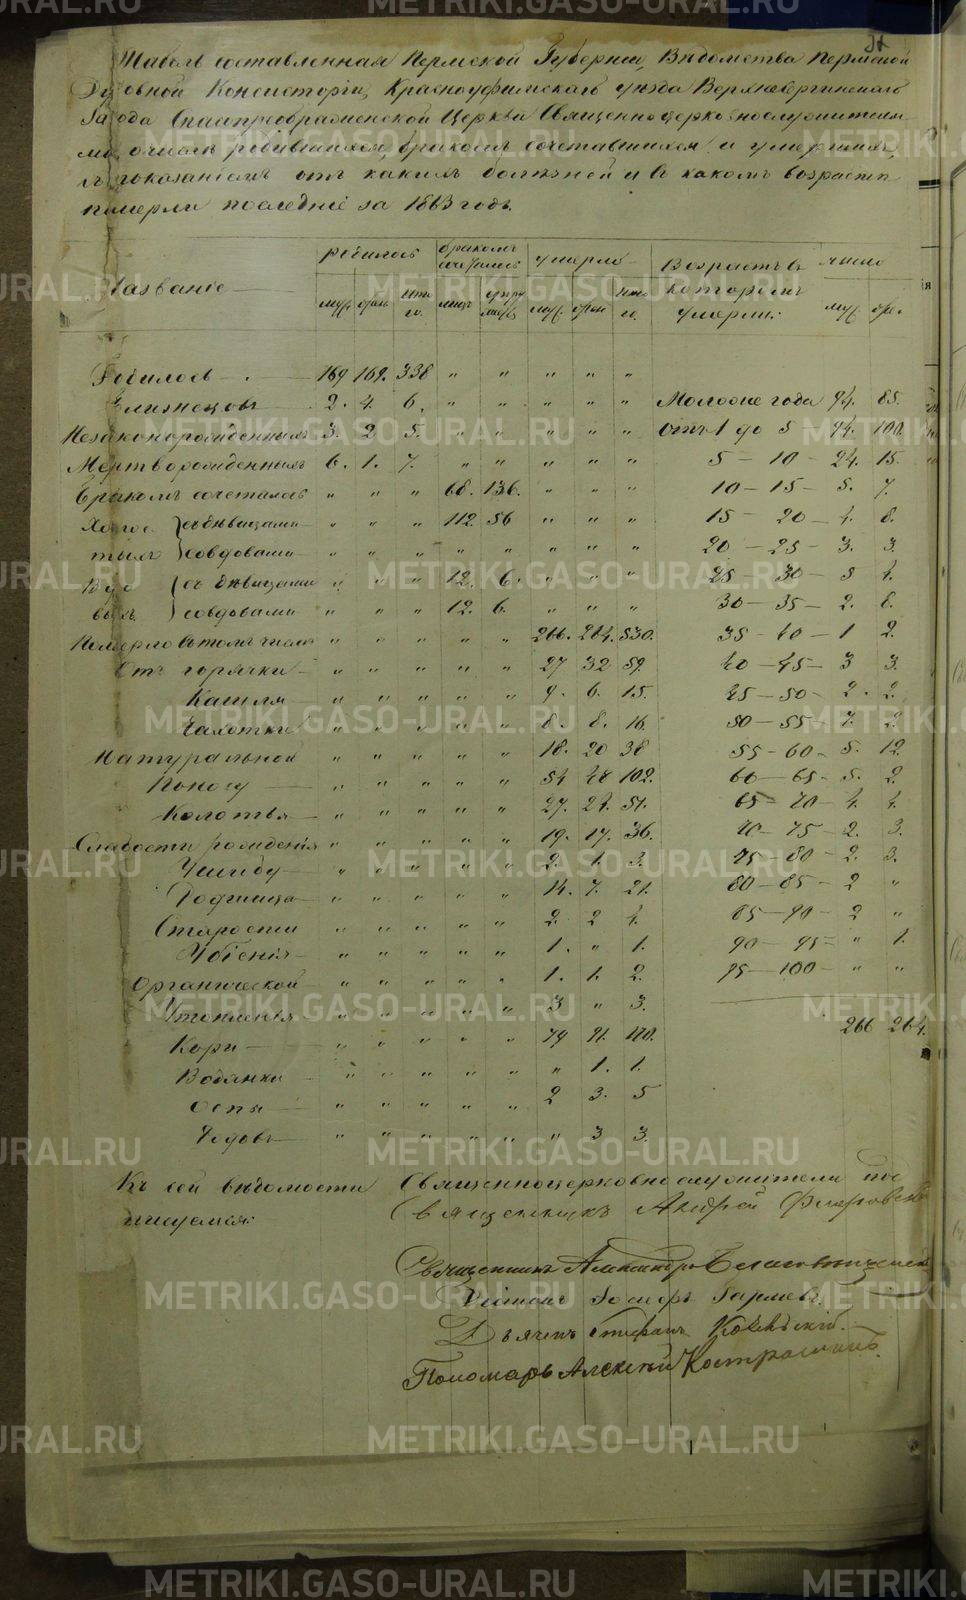 Табель составленная Пермской Губернии, Ведомства Пермской
Духовной Консисторіи, Красноуфимскаго уезда Верхнесергинскаго
Завода Спаспреображенской Церкви Священноцерковнослужителями
о числѣ родившихся, бракомъ сочетавшихся и умершихъ,
съ показаніемъ отъ какихъ болѣзней и въ какомъ возрастѣ
померли последніе за 1863 годъ.
Названіе | родилось | бракомъ сочеталось | умерло | Возрастъ въ которомъ умерли: | число
муж. | жен. | ито го. | лицъ | супру жеств. | муж. | жен. | ито го. | муж. | жен.
Родилось — 169 169. 338 " " " " "
Близнецовъ 2. 4. 6. " " " " " Моложе года 94. 85.
Незаконорожденныхъ 3. 2 5. " " " " " Отъ 1 до 5 94. 100.
Мертворожденныхъ 6. 1. 7. " " " " " 5 — 10 — 24. 15.
Бракомъ сочеталось " " " 68. 136. " " " 10 — 15 — 5. 7.
Холос тыхъ { съ дѣвицами " " " 112 56 " " " 15 — 20 — 4. 8.
со вдовами " " " " " " " " 20 — 25 — 3. 3.
Вдо выхъ { съ дѣвицами " " " 12. 6. " " " 25 — 30 — 5 4.
со вдовами " " " 12. 6. " " " 30 — 35 — 2. 6.
Померло въ томъ числѣ " " " " " 266. 264. 530. 35 — 40 — 1 2.
Отъ горячки — " " " " " 27 32 59. 40 — 45 — 3 3.
Кашля " " " " " 9. 6. 15. 45 — 50 — 2. 2.
Чахотки " " " " " 8. 8. 16. 50 — 55 — 7. 2.
Натуральной " " " " " 18. 20 38 55 — 60 — 5. 12.
Поносу — " " " " " 54 48 102. 60 — 65 — 5. 2.
Колотья — " " " " " 27. 24. 51. 65 — 70 — 4. 4.
Слабости рожденія " " " " " 19. 17. 36. 70 — 75 — 2. 3.
Ушибу — " " " " " 2. 1. 3. 75 — 80 — 2. 3.
Родимца — " " " " " 14. 7. 21. 80 — 85 — 2 "
Старости " " " " " 2. 2 4. 85 — 90 — 2 "
Убіенія — " " " " " 1. " 1. 90 — 95 — " 1.
Органической — " " " " " 1. 1. 2. 95 — 100 — " "
Утопленія " " " " " 3 " 3. 266 264.
Кори — " " " " " 79 91. 170.
Водянки — " " " " " " 1. 1.
Оспы — " " " " " 2 3. 5
Родовъ — " " " " " " 3 3.
Къ сей вѣдомости Священноцерковнослужители под
писуемся: Священникъ Андрей
Священникъ Александръ
Діаконъ Іосифъ
Дьячекъ Стефанъ
Пономарь Алексѣй
METRIKI.GASO-URAL.RU